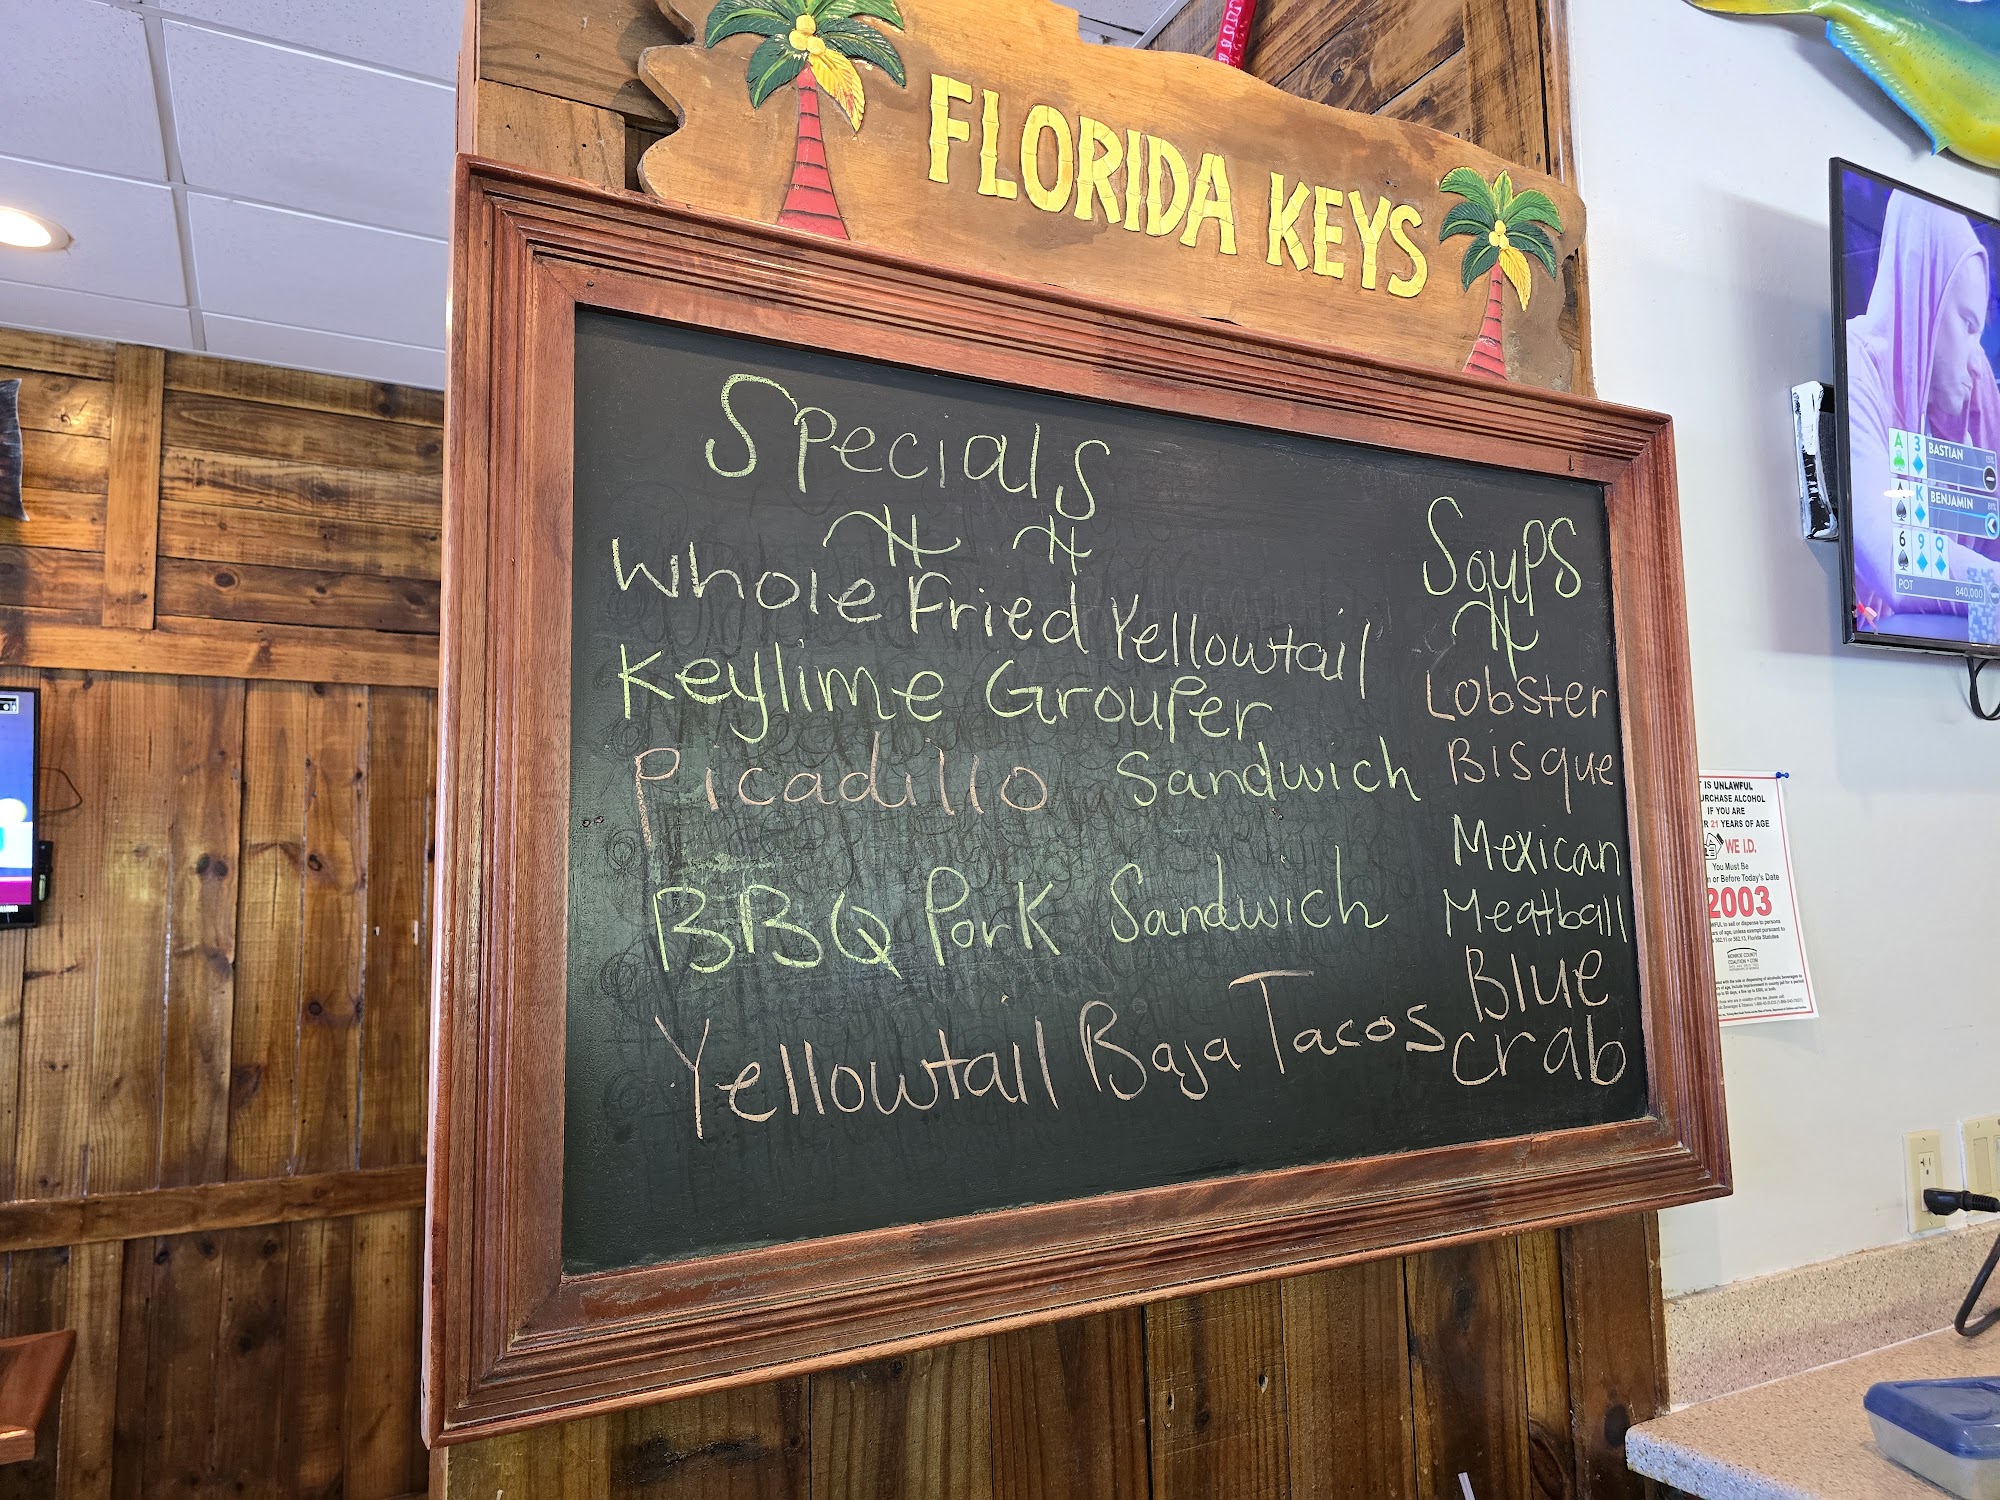 FLORIDA KEYS
Specials
Whole Fried Yellowtail
Keylime Grouper
Sandwich
Picadillo
BBQ Pork Sandwich
Yellowtail Baja Tacos
Soups
Lobster
Bisque
Mexican
Meatball
Blue
crab
A 3 BASTIAN
A K BENJAMIN
6 9 Q
POT 840,000
IS UNLAWFUL
URCHASE ALCOHOL
IF YOU ARE
R 21 YEARS OF AGE
WE I.D.
You Must Be
or Before Today's Date
2003
MONROE COUNTY
COALITION